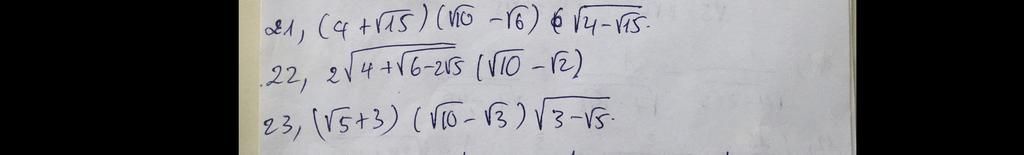 21, (4 + √15) (√10 - √6) √(4 - √15).
22, 2√(4 + √(6 - 2√5)) (√10 - √2)
23, (√5 + 3) (√10 - √3) √(3 - √5).